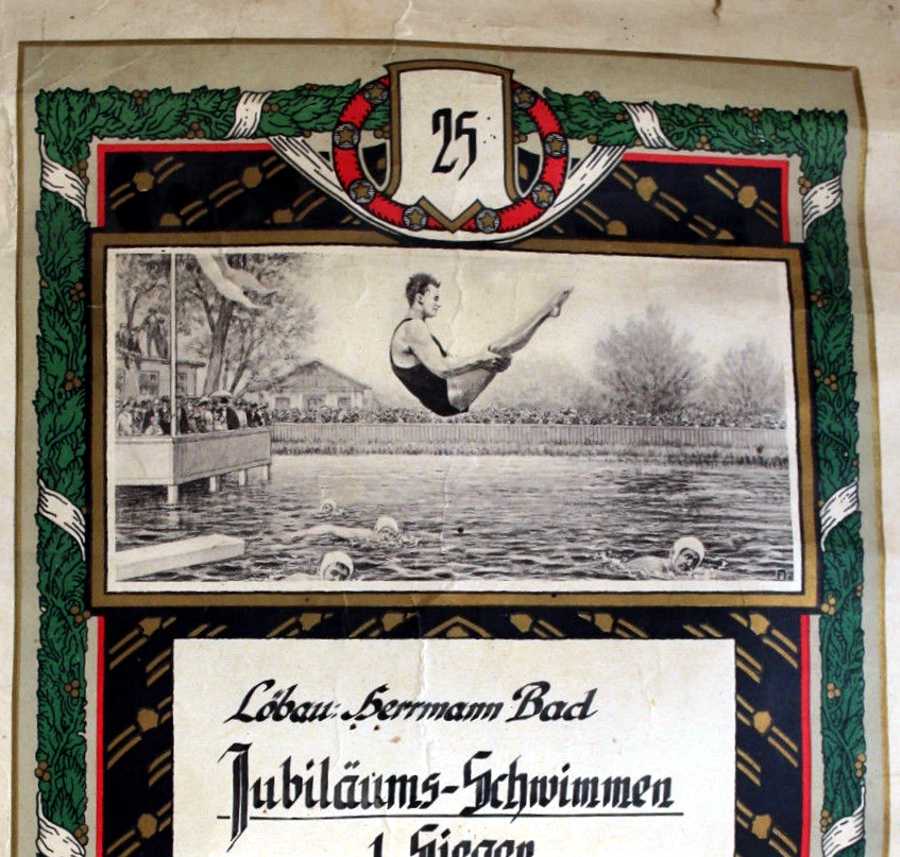 25
Löbau: Herrmann Bad
Jubiläums-Schwimmen
1. Sieger